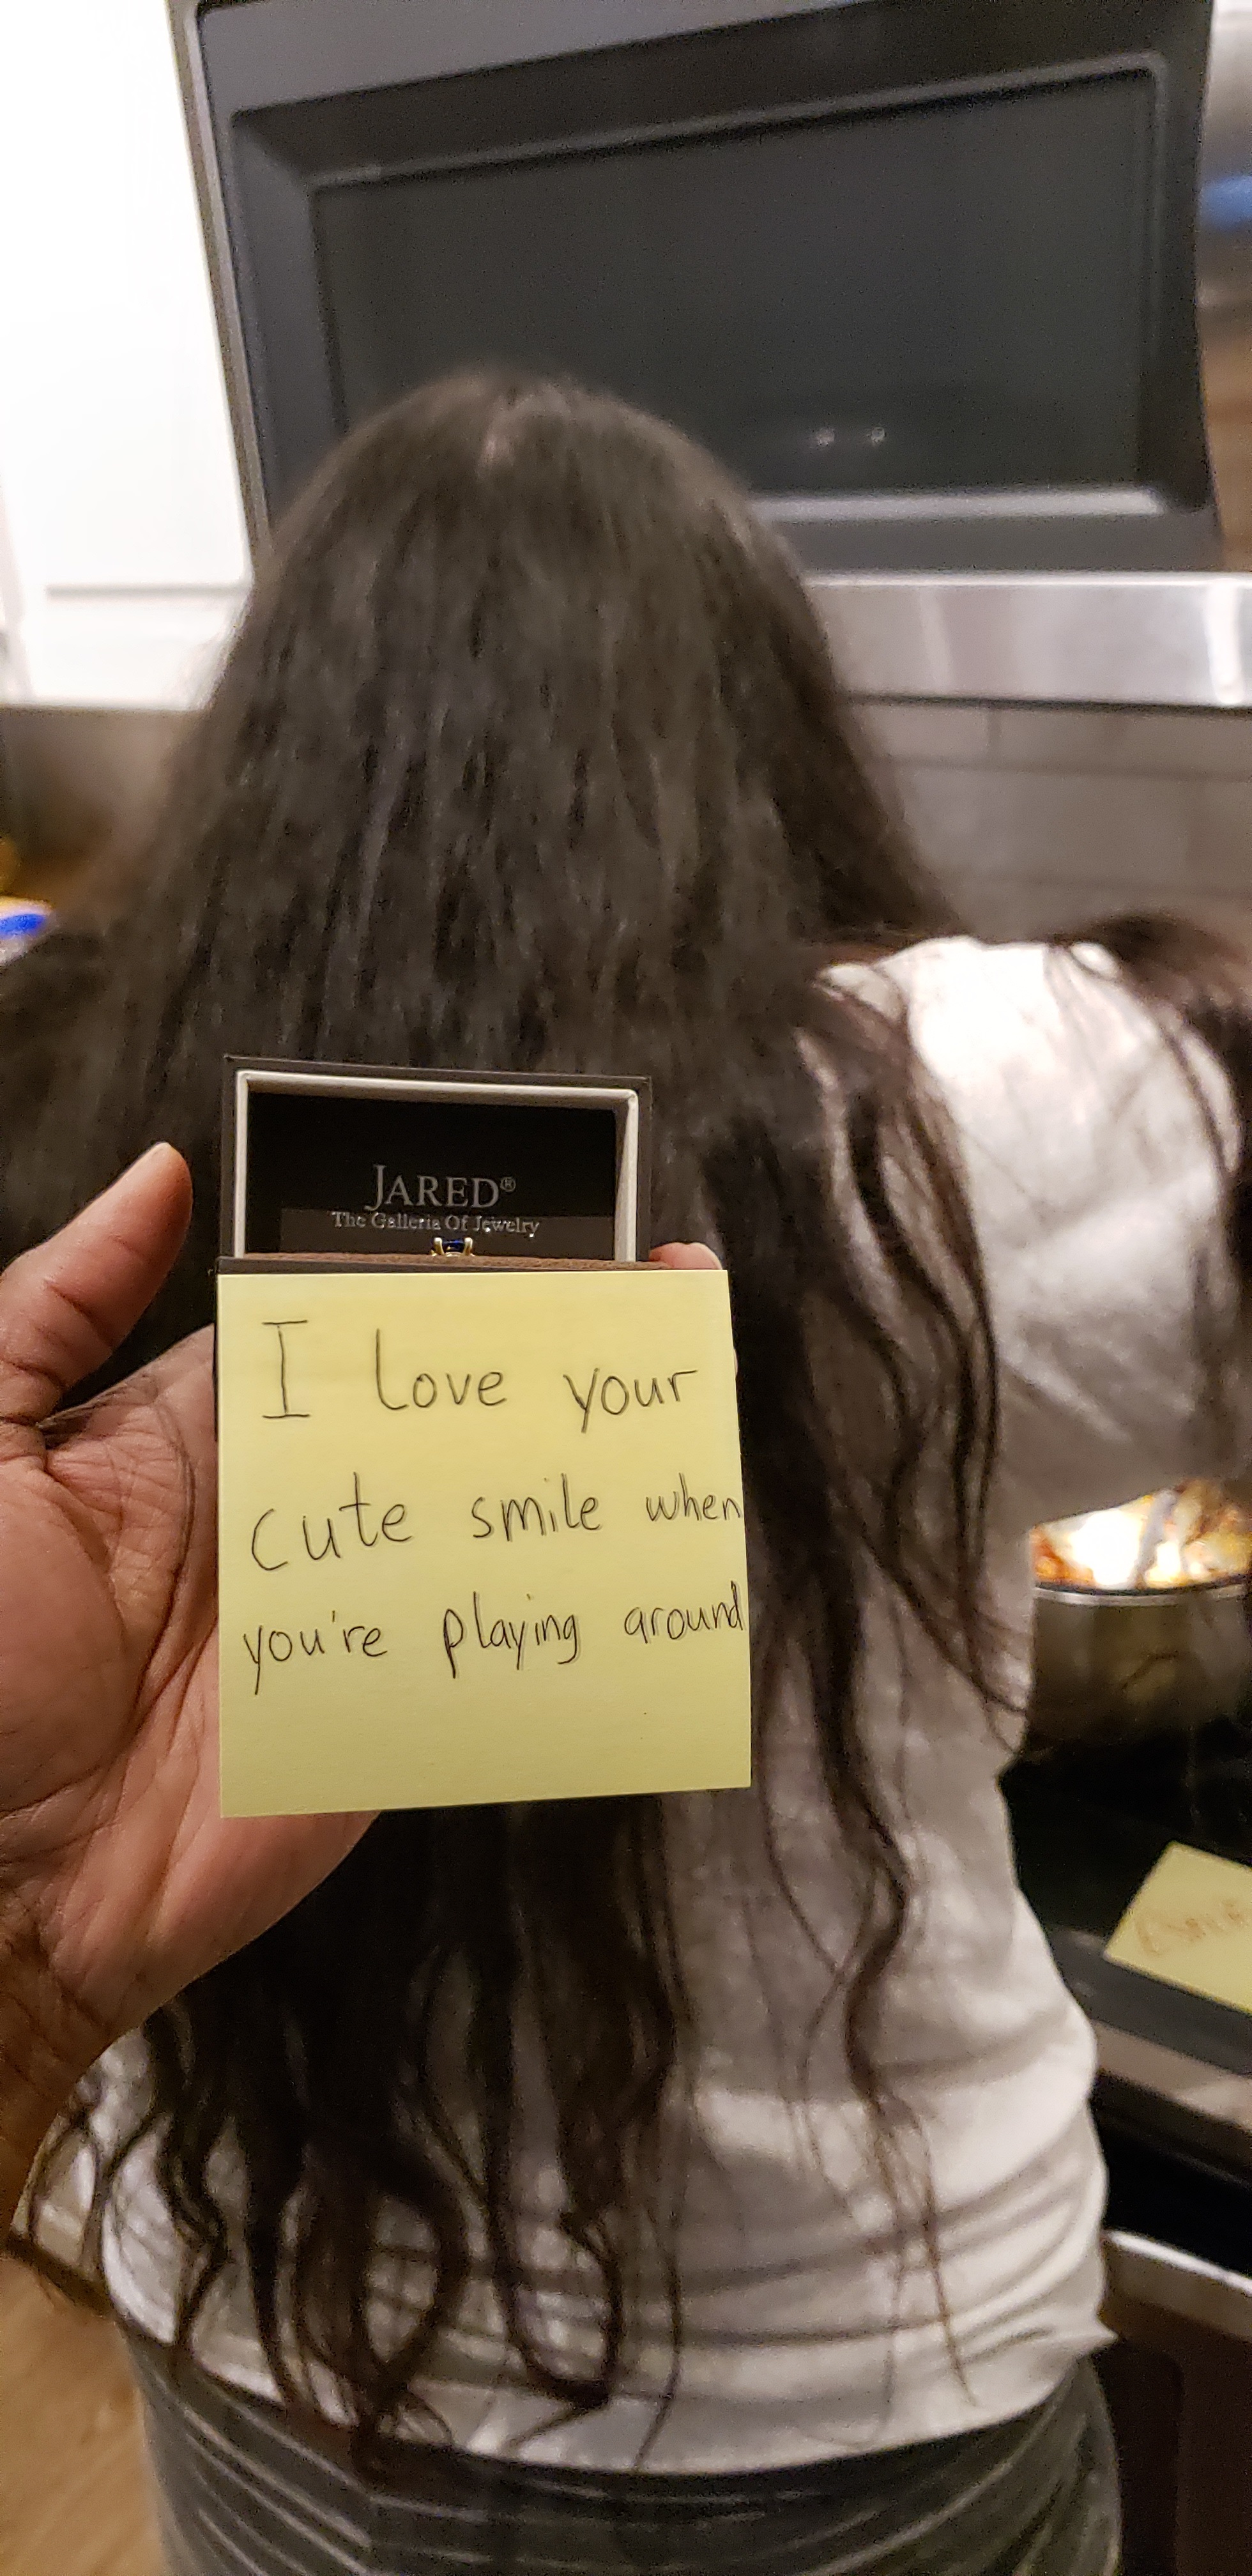 JARED®
The Galleria Of Jewelry
I love your
cute smile when
you're playing around